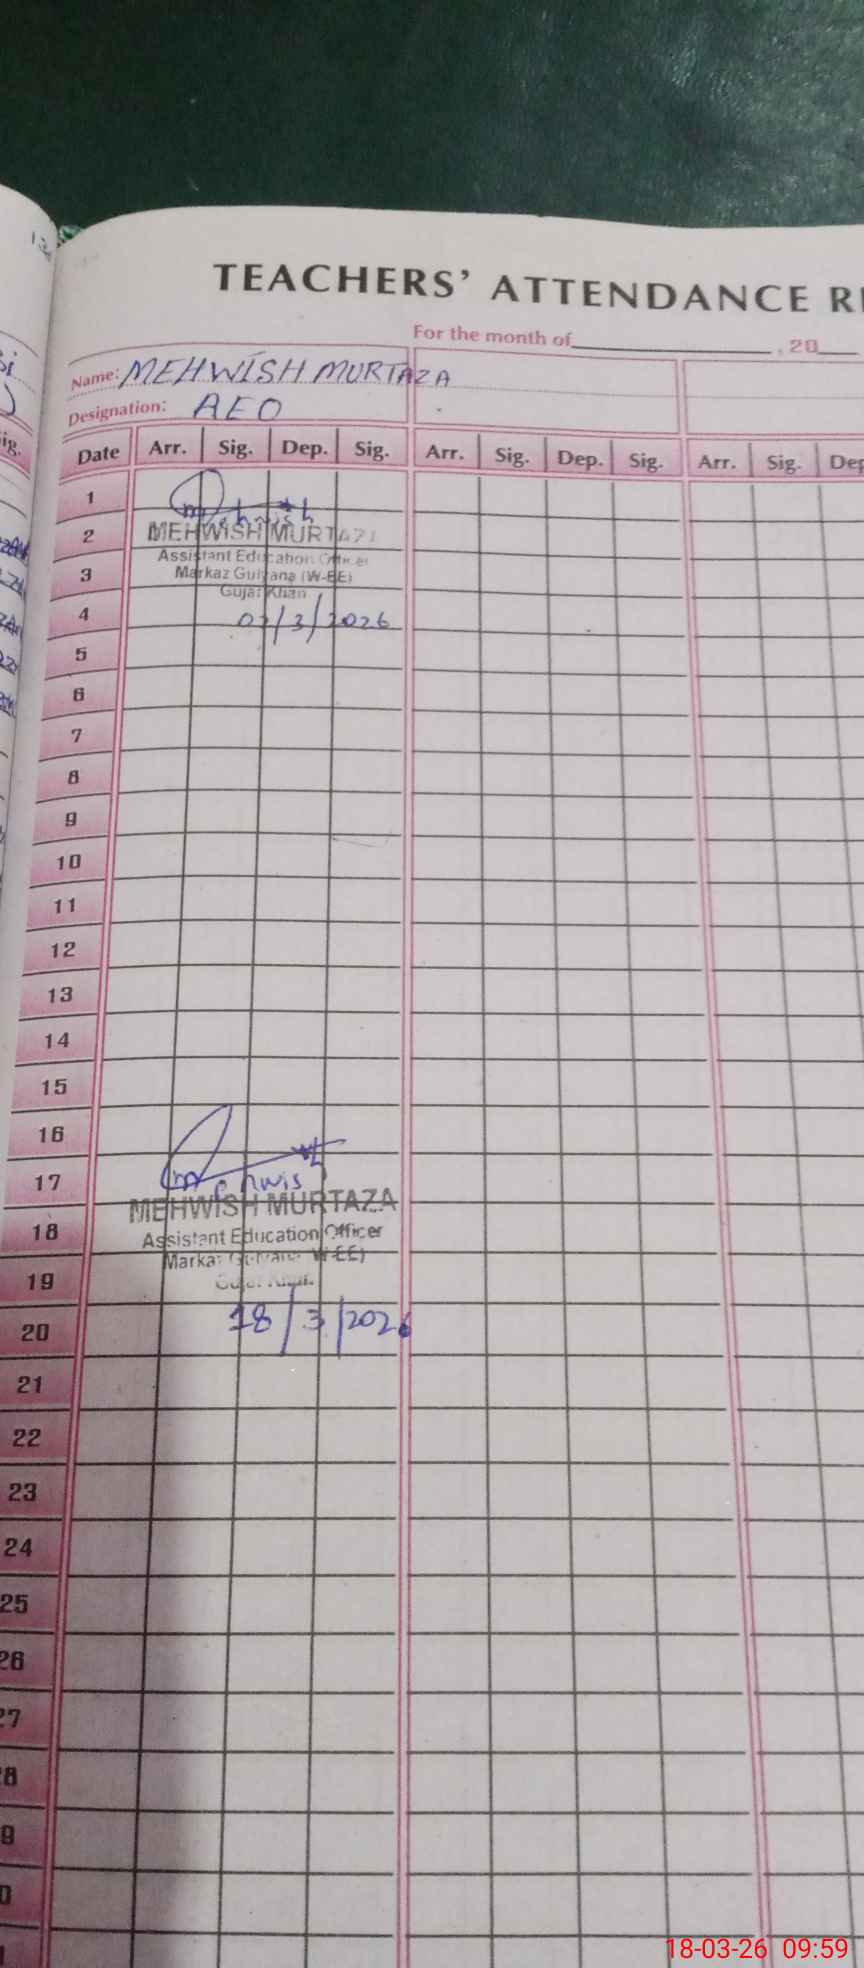 TEACHERS' ATTENDANCE
For the month of , 20
Name: MEHWISH MURTAZA
Designation: AEO
Date Arr. Sig. Dep. Sig. Arr. Sig. Dep. Sig. Arr. Sig.
1
2
MEHWISH MURTAZA
Assistant Education Officer
3
Markaz Gulyana (W-EE)
Gujar Khan
4
/3/2026
5
6
7
8
9
10
11
12
13
14
15
16
17
Mehwish
MEHWISH MURTAZA
18
Assistant Education Officer
Markaz Gulyana (W-EE)
19
Gujar Khan
20
18/3/2026
21
22
23
24
25
26
27
18-03-26 09:59